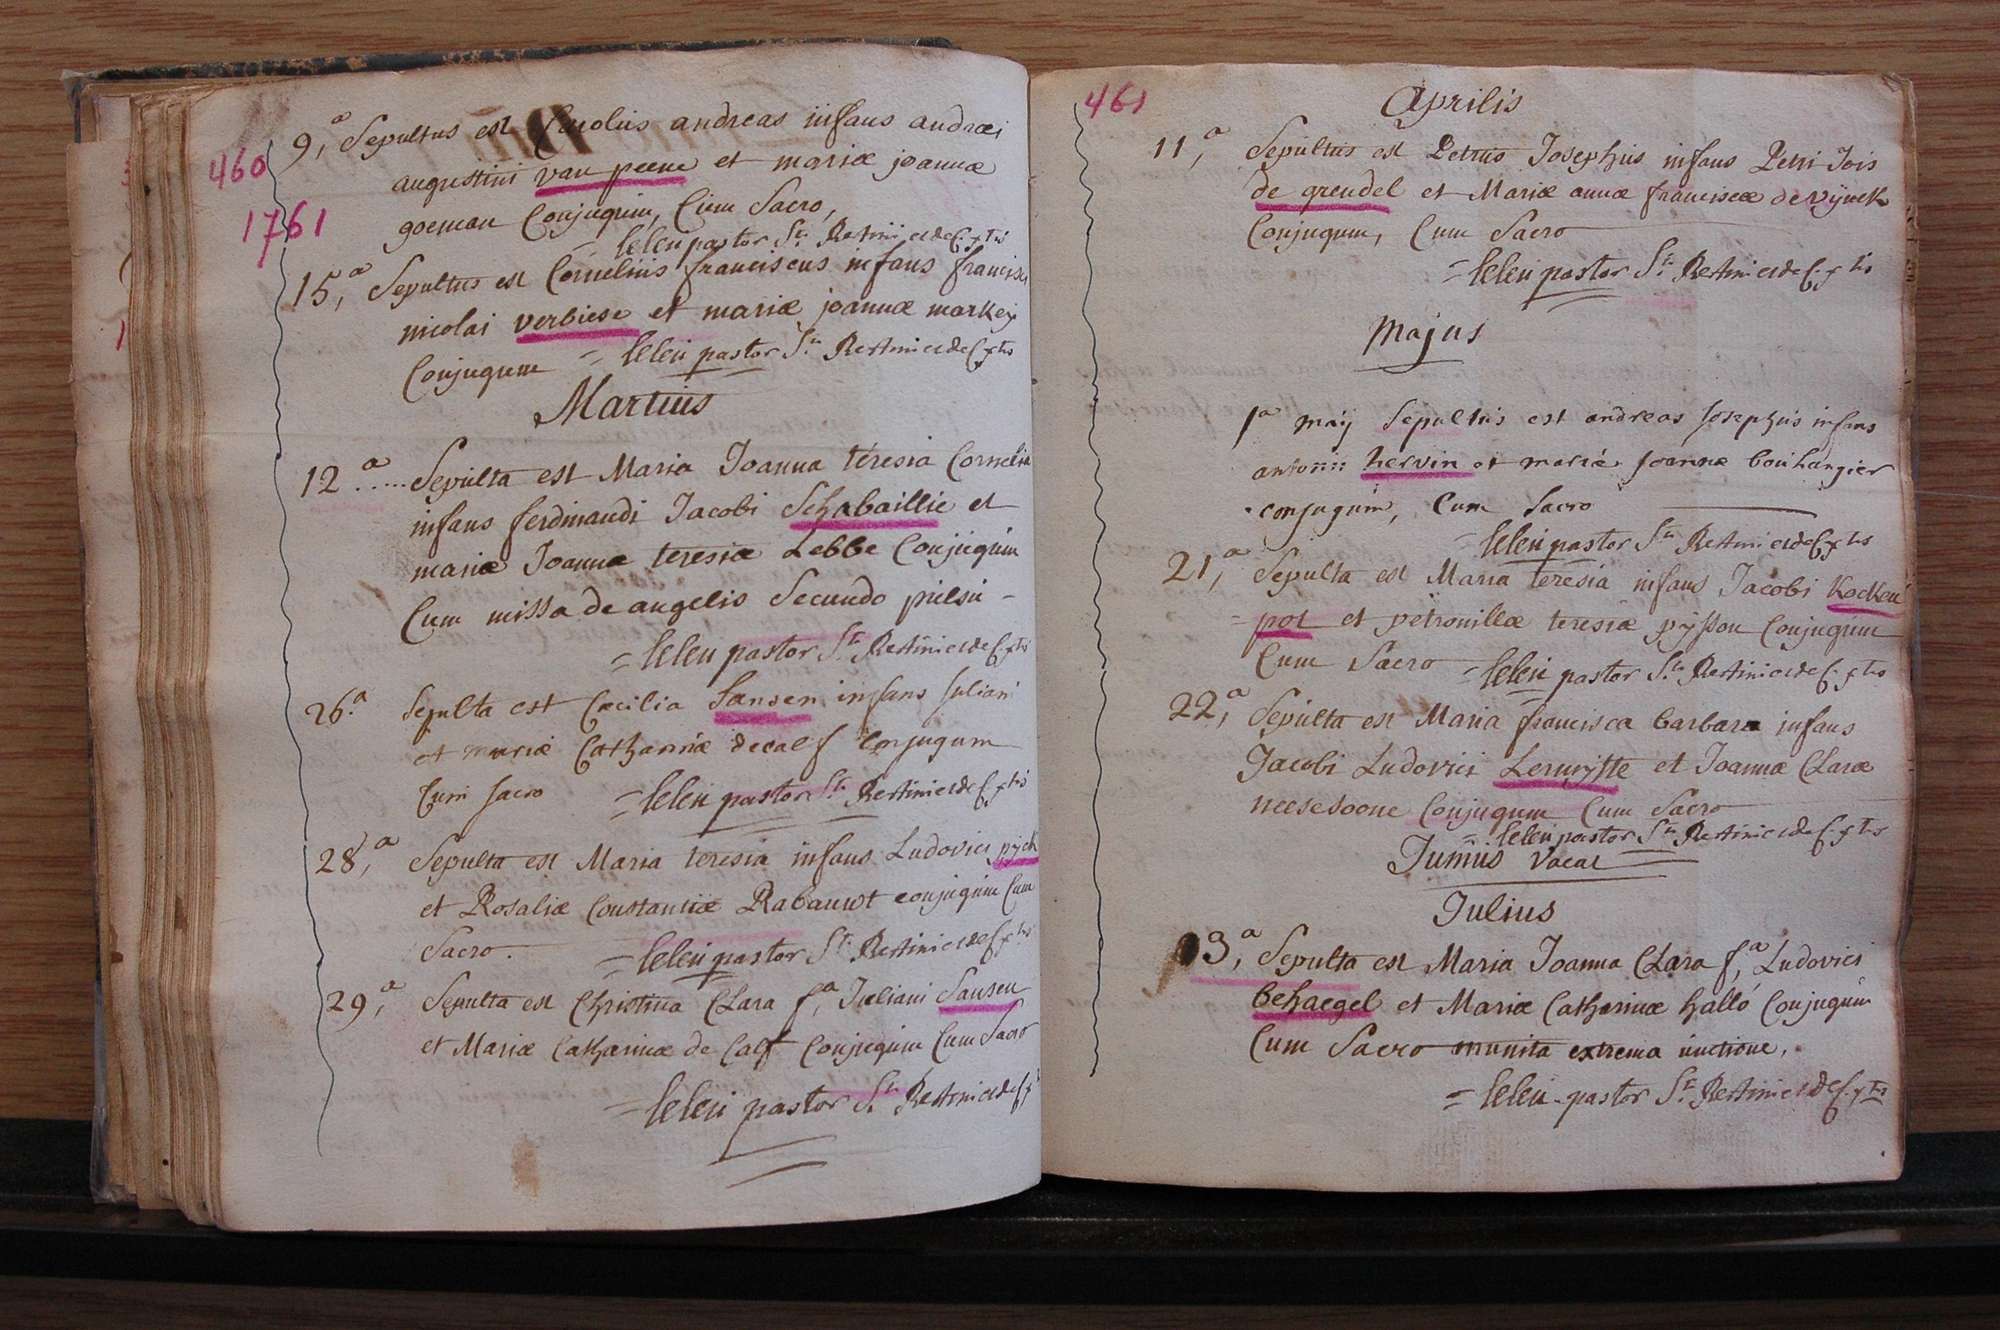 460
1761
9,a Sepultus est Carolus andreas infans andreæ
augustini van peene et mariæ joannæ
goeman Conjugum, Cum Sacro,
= leleu pastor Sti
15,a Sepultus est Cornelius franciscus infans francisci
nicolai verbiese et mariæ joannæ markey
Conjugum = leleu pastor Sti
Martius
12a ..... Sepulta est Maria Joanna teresia Cornelia
infans ferdinandi Jacobi Schabaillie et
mariæ Joannæ teresiæ Lebbe Conjugum
Cum missa de angelis Secundo
= leleu pastor Sti
26.a Sepulta est Cæcilia Sansen infans Juliani
et mariæ Catharinæ decalf Conjugum
Cum sacro = leleu pastor Sti
28,a Sepulta est Maria teresia infans Ludovici pyck
et Rosaliæ Constantiæ Rabauwt conjugum Cum
Sacro. = leleu pastor Sti
29,a Sepulta est Christina Clara fa, Juliani Sansen
et Mariæ Catharinæ de Calf Conjugum Cum Sacro
= leleu pastor Sti
461
Aprilis
11,a Sepultus est Petrus Josephus infans Petri Jois
de grendel et Mariæ annæ franciscæ devynck
Conjugum, Cum Sacro
= leleu pastor Sti
Majus
1a maÿ Sepultus est andreas Josephus infans
antonii hervin et mariæ Joannæ boulangier
conjugum, Cum Sacro
= leleu pastor Sti
21,a Sepulta est Maria teresia infans Jacobi Kocken
= pot et petronillæ teresiæ pÿsson Conjugum
Cum Sacro = leleu pastor Sti
22,a Sepulta est Maria francisca barbara infans
Jacobi Ludovici Leruÿtte et Joannæ Claræ
neesesoone Conjugum Cum Sacro
= leleu pastor Sti
Junius vacat
Julius
3,a Sepulta est Maria Joanna Clara f,a Ludovici
behaegel et Mariæ Catharinæ hallo Conjugum
Cum Sacro munita extrema unctione,
= leleu pastor Sti